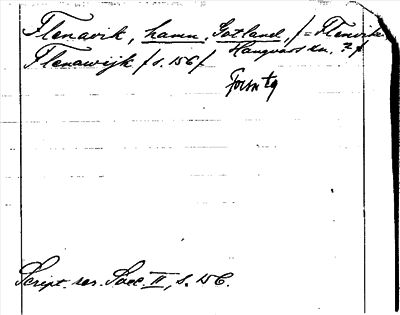 Flenavik, hamn, Gotland, /= Flenviken
Hangvars sn. ? /
Flenawijk / s. 156 /
Forn tg
Script. rer. Svec. II, s. 156.